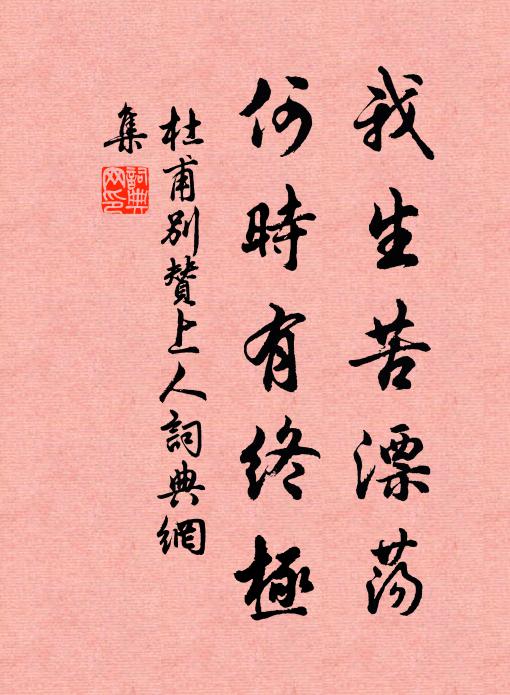 我生苦漂荡
何時有終極
杜甫別贊上人詞典網
集
詞典
网印